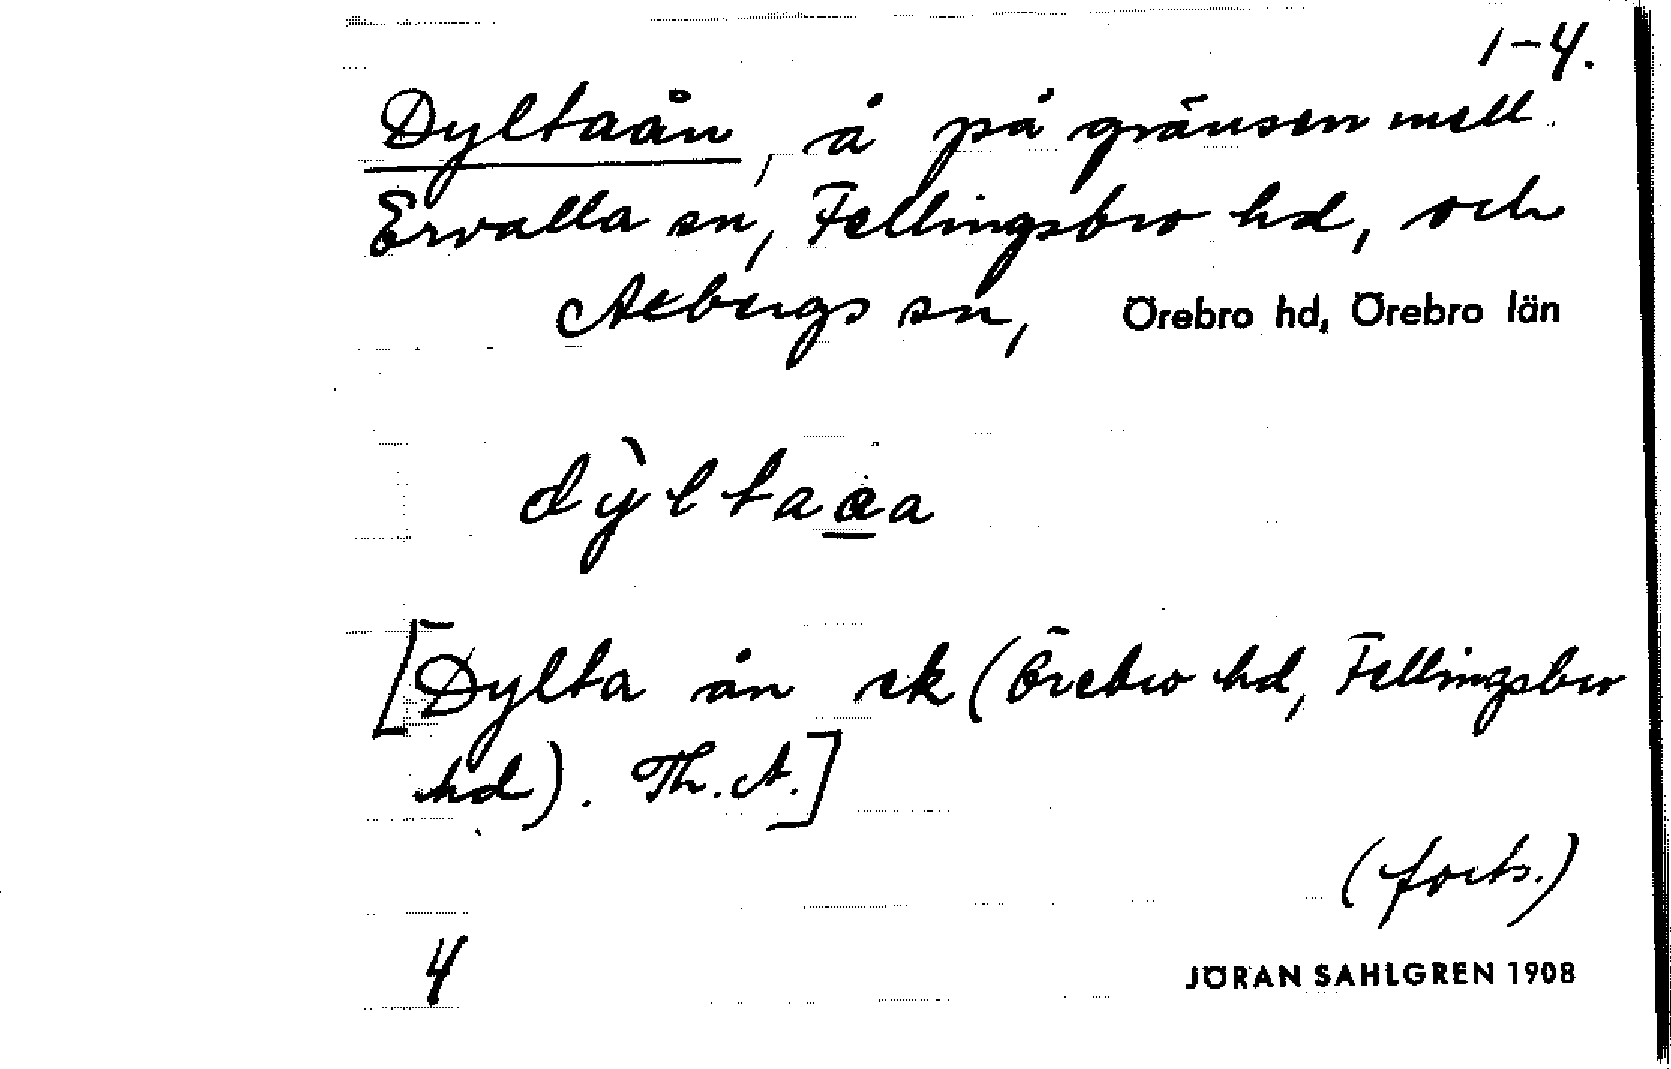 1-4.
Dyltaån, å på gränsen mell.
Ervalla sn, Fellingsbro hd, och
Axbergs sn, Örebro hd, Örebro län
dỳltaåa
[Dylta ån ek (Örebro hd, Fellingsbro
hd). Th. A.]
(forts.)
4 JÖRAN SAHLGREN 1908